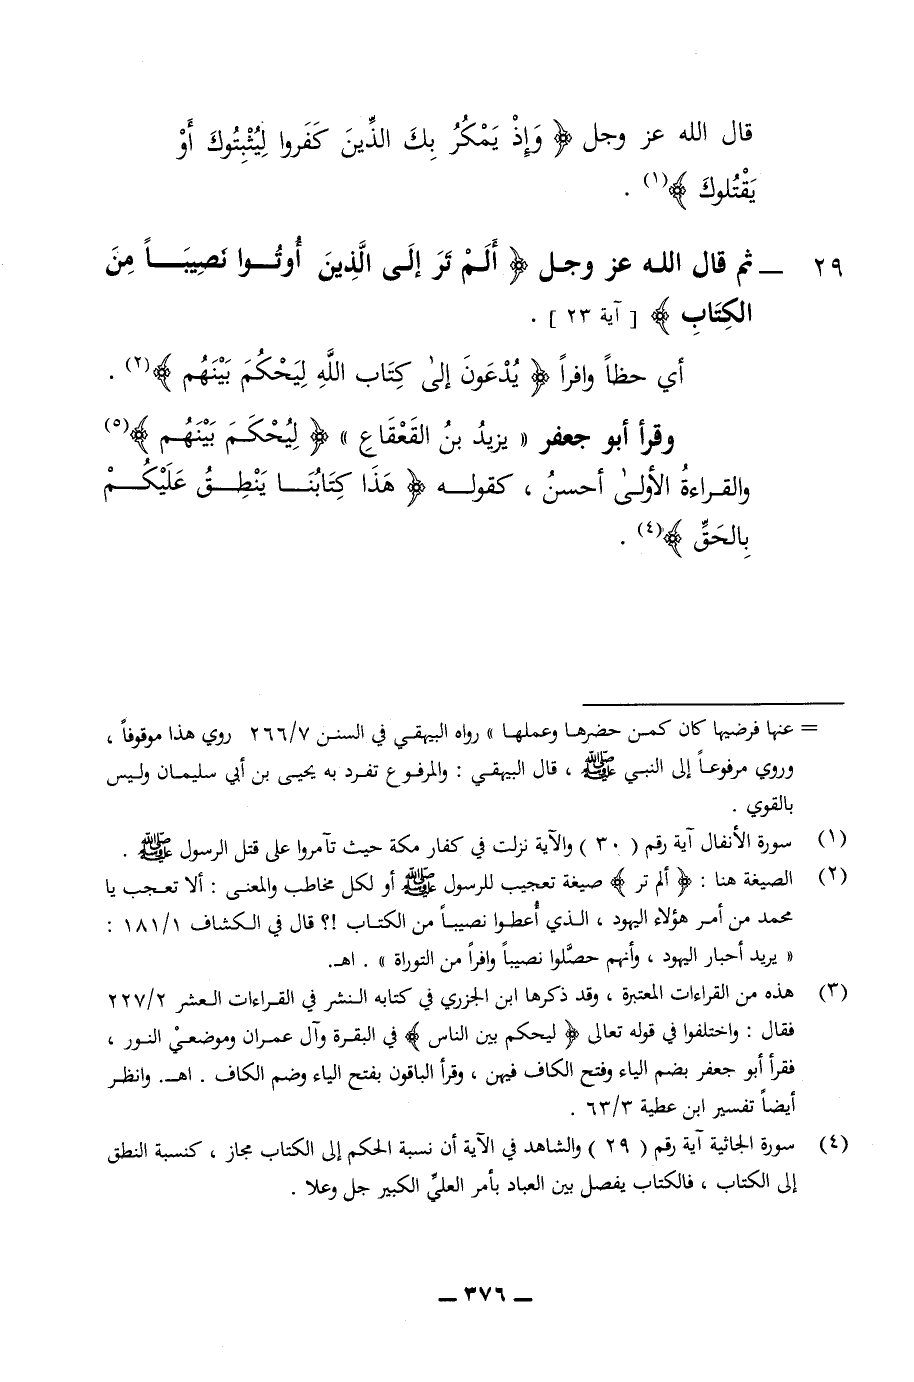 قال الله عز وجل ﴿ وَإِذْ يَمْكُرُ بِكَ الذِّينَ كَفَروا لِيُثْبِتُوكَ أَوْ
يَقْتُلوكَ ﴾(١) .
٢٩ ــ ثم قال الله عز وجـل ﴿ أَلَـمْ تَرَ إلَـى الَّذِينَ أُوتُـوا نَصِيبَـاً مِنَ
الكِتَابِ ﴾ [ آية ٢٣ ] .
أي حظاً وافراً ﴿ يُدْعَونَ إلىٰ كِتَاب اللَّهِ لِيَحْكُمَ بَيْنَهُم ﴾(٢) .
وقرأ أبو جعفر « يزيدُ بنُ القَعْقَاعِ » ﴿ لِيُحْكَـمَ بَيْنَهُـم ﴾(٥)
والقـراءةُ الأولـىٰ أحسنُ ، كقولـه ﴿ هَذَا كِتَابُنَـا يَنْطِـقُ عَلَيْكُـمْ
بِالحَقِّ ﴾(٤) .
= عنها فرضيها كان كمـن حضرهـا وعملهـا » رواه البيهقـي في السنن ٢٦٦/٧ روي هذا موقوفاً ،
وروي مرفوعـاً إلى النبي ﷺ ، قال البيهقي : والمرفـوع تفـرد به يحيـى بن أبي سليمان وليس
بالقوي .
(١) سورة الأنفال آية رقم ( ٣٠ ) والآية نزلت في كفار مكة حيث تآمروا على قتل الرسول ﷺ .
(٢) الصيغة هنا : ﴿ ألم تر ﴾ صيغة تعجيب للرسول ﷺ أو لكل مخاطب والمعنـى : ألا تعـجب يا
محمد من أمـر هؤلاء اليهود ، الـذي أُعطـوا نصيبـاً من الكتـاب !؟ قال في الـكشاف ١٨١/١ :
« يريد أحبار اليهود ، وأنهم حصَّلوا نصيباً وافراً من التوراة » . اهـ.
(٣) هذه من القراءات المعتبرة ، وقد ذكرها ابن الجزري في كتابه النشر في القـراءات الـعشر ٢٢٧/٢
فقال : واختلفوا في قوله تعالى ﴿ ليحكم بين الناس ﴾ في البقـرة وآل عمـران وموضعيْ النـور ،
فقرأ أبو جعفر بضم الياء وفتح الكاف فيهن ، وقرأ الباقون بفتح الياء وضم الكاف . اهـ. وانظـر
أيضاً تفسير ابن عطية ٦٣/٣ .
(٤) سورة الجاثية آية رقم ( ٢٩ ) والشاهد في الآية أن نسبة الحكم إلى الكتاب مجاز ، كنسبة النطق
إلى الكتاب ، فالكتاب يفصل بين العباد بأمر العليِّ الكبير جل وعلا .
ــ ٣٧٦ ــ